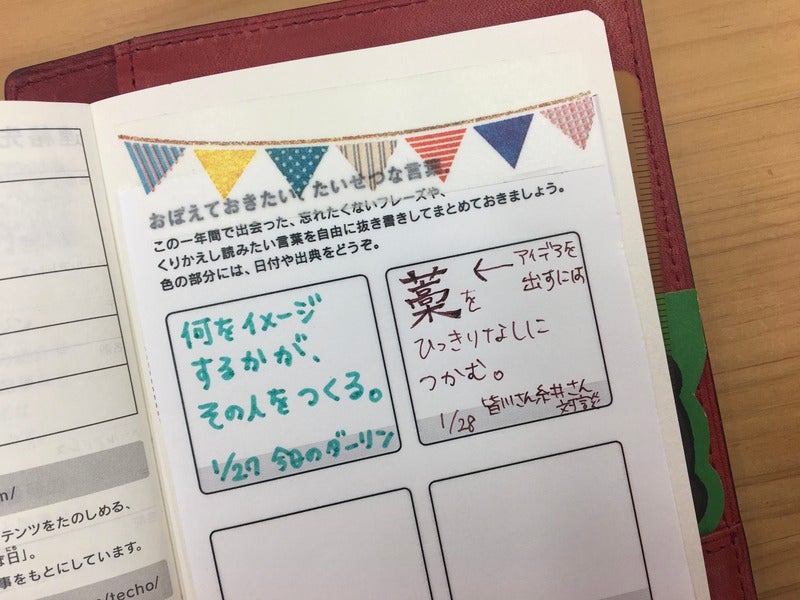 おぼえておきたい、たいせつな言葉
この一年間で出会った、忘れたくないフレーズや、
くりかえし読みたい言葉を自由に抜き書きしてまとめておきましょう。
色の部分には、日付や出典をどうぞ。
何をイメージ
するかが、
その人をつくる。
1/27 今日のダーリン
藁を ← アイデアを
出すには
ひっきりなしに
つかむ。
1/28 皆川さん糸井さん
対談
m/
テンツをたのしめる、
な日」。
事をもとにしています。
m/techo/